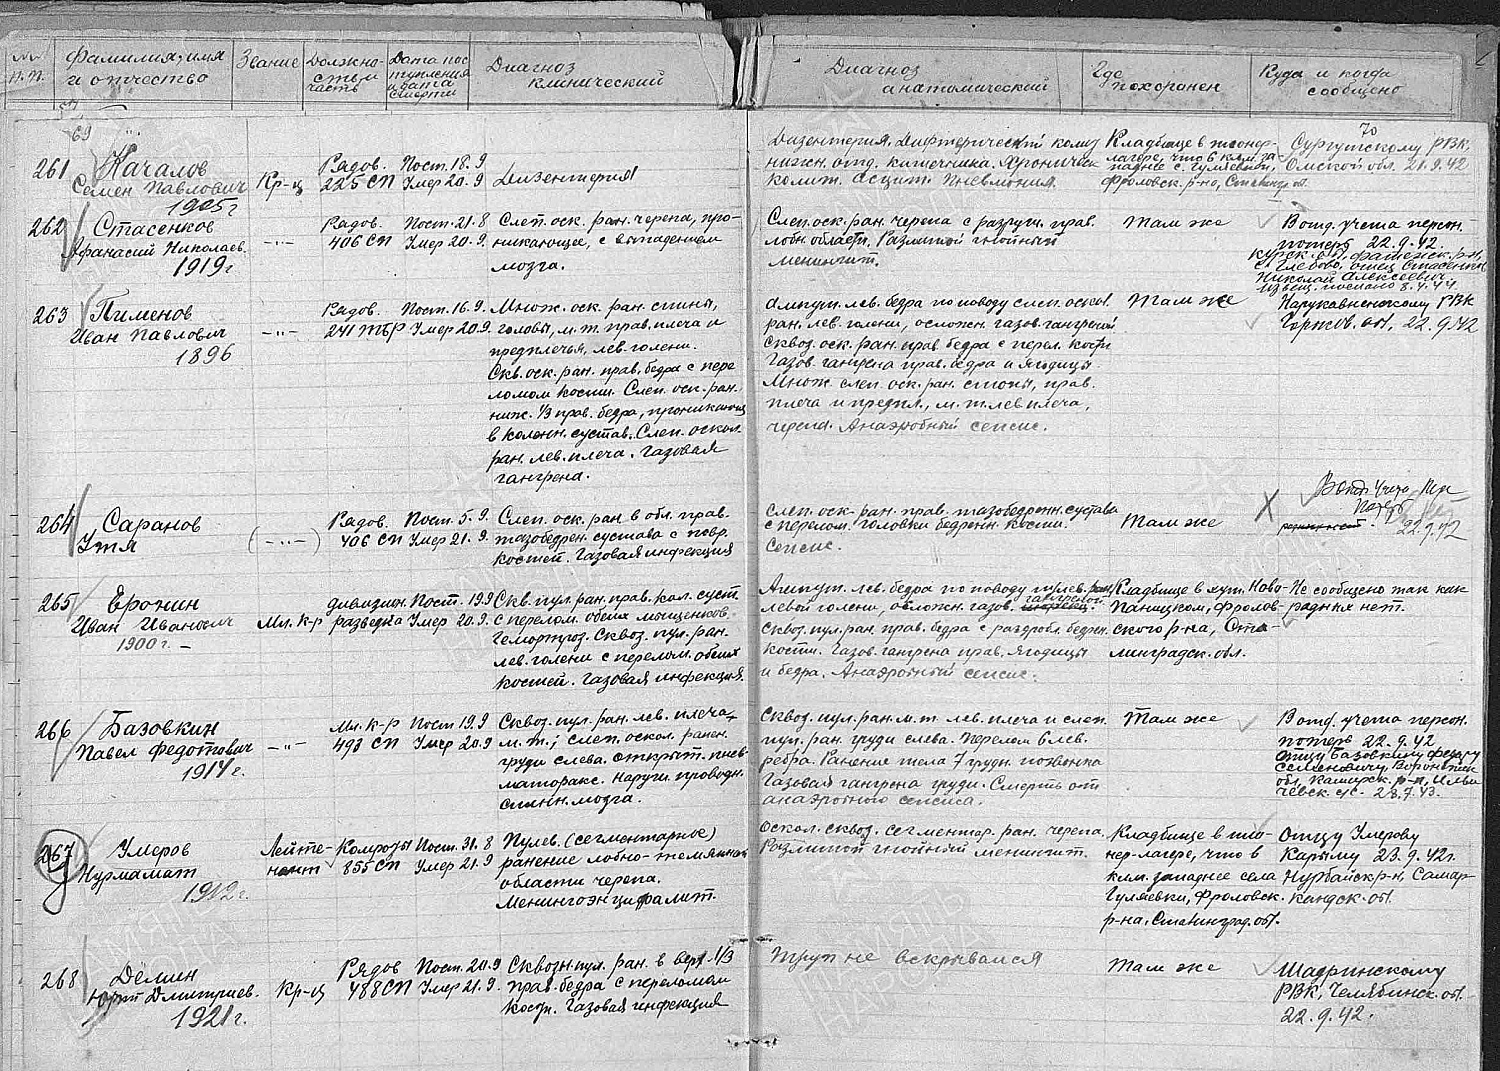 № п.п. Фамилия, имя и отчество Звание Должность и часть Дата поступления и дата смерти Диагноз клинический Диагноз анатомический Где похоронен Куда и когда сообщено
69
70
261 Качалов
Семен Павлович
1905 г
Кр-ц
Рядов.
225 СП
Пост. 18.9
Умер 20.9
Дизентерия
Дизентерия. Дифтерический колит
нижн. отд. кишечника. Хроническ
колит. Асцит. Пневмония.
Кладбище в
лагере, что 6 клм. за
паднее с. Гуляевки,
Фроловск. р-на, Сталингр. об.
Сургутскому РВК,
Омской обл. 21.9.42
262 Стасенков
Афанасий Николаев.
1919 г
-"-
Рядов.
406 СП
Пост. 21.8
Умер 20.9.
Слеп. оск. ран. черепа, про-
никающее, с выпадением
мозга.
Слеп. оск. ран. черепа с разруш. прав.
лобн. области. Разлитой гнойный
менингит.
Там же
В отд. учета персон.
потерь 22.9.42.
Курск. обл, Фатежск. р-н,
с. Глебово, отец Стасенков
Николай Алексеевич.
Извещ. послано 8.4.44.
263 Пименов
Иван Павлович
1896
-"-
Рядов.
241 ТБР
Пост. 16.9
Умер 20.9.
Множ. оск. ран. спины,
головы, м.т. прав. плеча и
предплечья, лев. голени.
Скв. оск. ран. прав. бедра с пере
ломом кости. Слеп. оск. ран.
ниж. 1/3 прав. бедра, проникающ
в коленн. сустав. Слеп. оскол.
ран. лев. плеча. Газовая
гангрена.
Ампут. лев. бедра по поводу слеп. оскол.
ран. лев. голени, осложн. газов. гангреной
Сквоз. оск. ран. прав. бедра с перел. кости
Газов. гангрена прав. бедра и ягодицы.
Множ. слеп. оск. ран. стопы, прав.
плеча и предпл., м.т. лев. плеча,
череп. Анаэробный сепсис.
Там же
РВК
Горьков. обл, 22.9.42
264 Саранов
Утя
(-"-)
Рядов.
406 СП
Пост. 5.9.
Умер 21.9.
Слеп. оск. ран в обл. прав.
тазобедрен. сустава с повр.
костей. Газовая инфекция
Слеп. оск. ран. прав. тазобедренн. сустава
с перелом. головки бедренн. кости.
Сепсис.
Там же
В отд. учета
потерь
22.9.42
265 Еронин
Иван Иванович
1900 г. -
Мл. к-р
дивизион.
разведка
Пост. 19.9
Умер 20.9.
Скв. пул. ран. прав. кол. суст.
с перелом. обеих мыщелков.
Гемартроз. Сквоз. пул. ран.
лев. голени с перелом. обеих
костей. Газовая инфекция.
Ампут. лев. бедра по поводу пулев. ран.
левой голени, осложн. газов. гангреной
Сквоз. пул. ран. прав. бедра с раздробл. бедрен.
кости. Газов. гангрена прав. ягодицы
и бедра. Анаэробный сепсис.
Кладбище в хут. Ново-
Паницком, Фролов
ского р-на, Ста-
линградск. обл.
Не сообщено так как
родных нет.
266 Базовкин
Павел Федотович
1914 г.
-"-
Мл. к-р
493 СП
Пост 19.9
Умер 20.9
Сквоз. пул. ран. лев. плеча,
м.т.; слеп. оскол. ранен.
груди слева. открыт. пнев-
маторакс. Наруш. проводн.
спинн. мозга.
Сквоз. пул. ран. м.т. лев. плеча и слеп.
пул. ран. груди слева. Перелом 6 лев.
ребра. Ранение тела 7 грудн. позвонка
Газовая гангрена груди. Смерть от
анаэробного сепсиса.
Там же
В отд. учета персон.
потерь 22.9.42.
Отцу Базовкину Федоту
Семеновичу, Воронежск
обл. Каширск. р-н,
с/с - 28.7.43.
267 Умеров
Нурмамат
1912 г.
Лейте-
нант
Комроты
855 СП
Пост. 31.8
Умер 21.9
Пулев. (сегментарное)
ранение лобно-теменной
области черепа.
Менингоэнцифалит.
Оскол. сквоз. сегментар. ран. черепа,
Разлитой гнойный менингит.
Кладбище в пио-
нер-лагере, что в
клм. западнее села
Гуляевки, Фроловск.
р-на. Сталинград. обл.
Отцу Умерову
Карыму 23.9.42г.
Нурбайск р-н, Самар
кандск. обл.
268 Дёмин
Юрт Дмитриев.
1921 г.
Кр-ц
Рядов
488 СП
Пост. 20.9
Умер 21.9.
Сквозн. пул. ран. в верх. 1/3
прав. бедра с переломом
кости. Газовая инфекция
Труп не вскрывался
Там же
Шадринскому
РВК, Челябинск. обл.
22.9.42.
ПАМЯТЬ НАРОДА